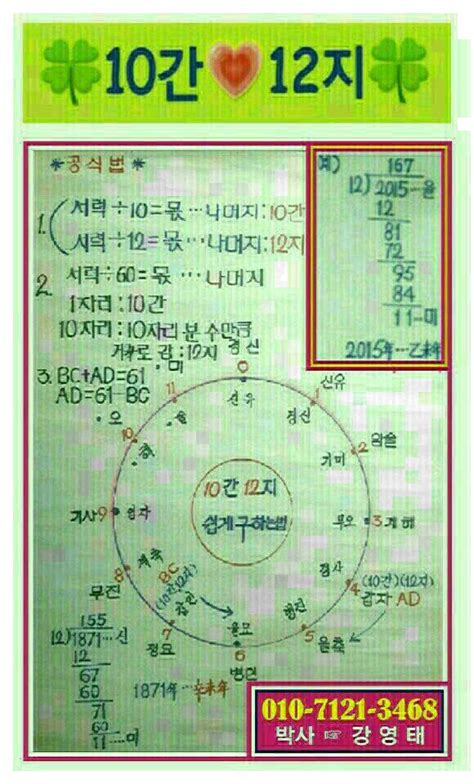 10간 12지
*공식법*
1. 서력÷10=몫…나머지:10간
서력÷12=몫…나머지:12지
2. 서력÷60=몫…나머지
1자리:10간
10자리:10자리 분 수만큼
거꾸로 감:12지
3. BC+AD=61
AD=61-BC
예)
167
12)2015…을
12
81
72
95
84
11…미
2015年…乙未年
경신
0
신유
신유
1
경신
임술
2
기미
3 계해
무오
(10간)(12지)
4 갑자 AD
정사
5 을축
병진
6
병인
을묘
7
정묘
갑인
BC
(10간)(12지)
8
무진
계축
기사 9
임자
10
오
해
11
미
술
10간 12지
쉽게 구하는법
155
12)1871…신
12
67
60
71
60
11…미
1871年…辛未年
010-7121-3468
박사 ☞ 강영태